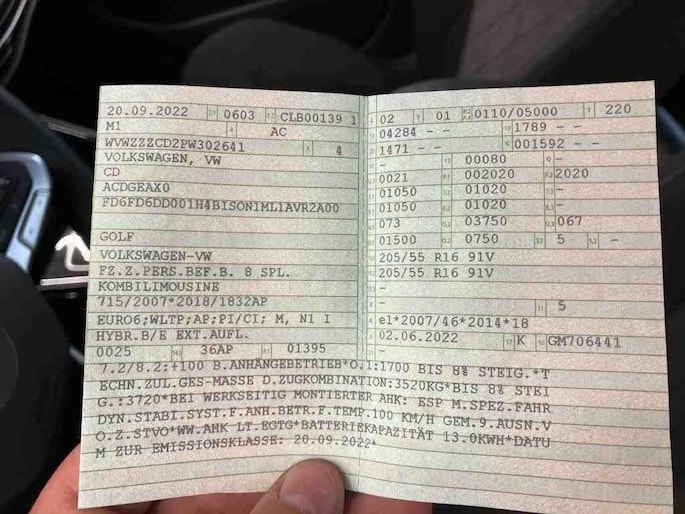 20.09.2022 0603 CLB00139 1
M1 AC
WVWZZZCD2PW302641 4
VOLKSWAGEN, VW
CD
ACDGEAX0
FD6FD6DD001H4BISON1ML1AVR2A00
GOLF
VOLKSWAGEN-VW
FZ.Z.PERS.BEF.B. 8 SPL.
KOMBILIMOUSINE
715/2007*2018/1832AP
EURO6;WLTP;AP;PI/CI; M, N1 I
HYBR.B/E EXT.AUFL.
0025 36AP 01395
02 01 0110/05000 220
04284 - - 1789 - -
1471 - - 001592 - -
- 00080 -
0021 002020 2020
01050 01020 -
01050 01020 -
073 03750 067
01500 0750 5 -
205/55 R16 91V
205/55 R16 91V
-
- 5
e1*2007/46*2014*18
02.06.2022 K GM706441
-
7.2/8.2:+100 B.ANHÄNGEBETRIEB*O.1:1700 BIS 8% STEIG.*T
ECHN.ZUL.GES-MASSE D.ZUGKOMBINATION:3520KG*BIS 8% STEI
G.:3720*BEI WERKSEITIG MONTIERTER AHK: ESP M.SPEZ.FAHR
DYN.STABI.SYST.F.ANH.BETR.F.TEMP.100 KM/H GEM.9.AUSN.V
O.Z.STVO*WW.AHK LT.EGTG*BATTERIEKAPAZITÄT 13.0KWH*DATU
M ZUR EMISSIONSKLASSE: 20.09.2022*